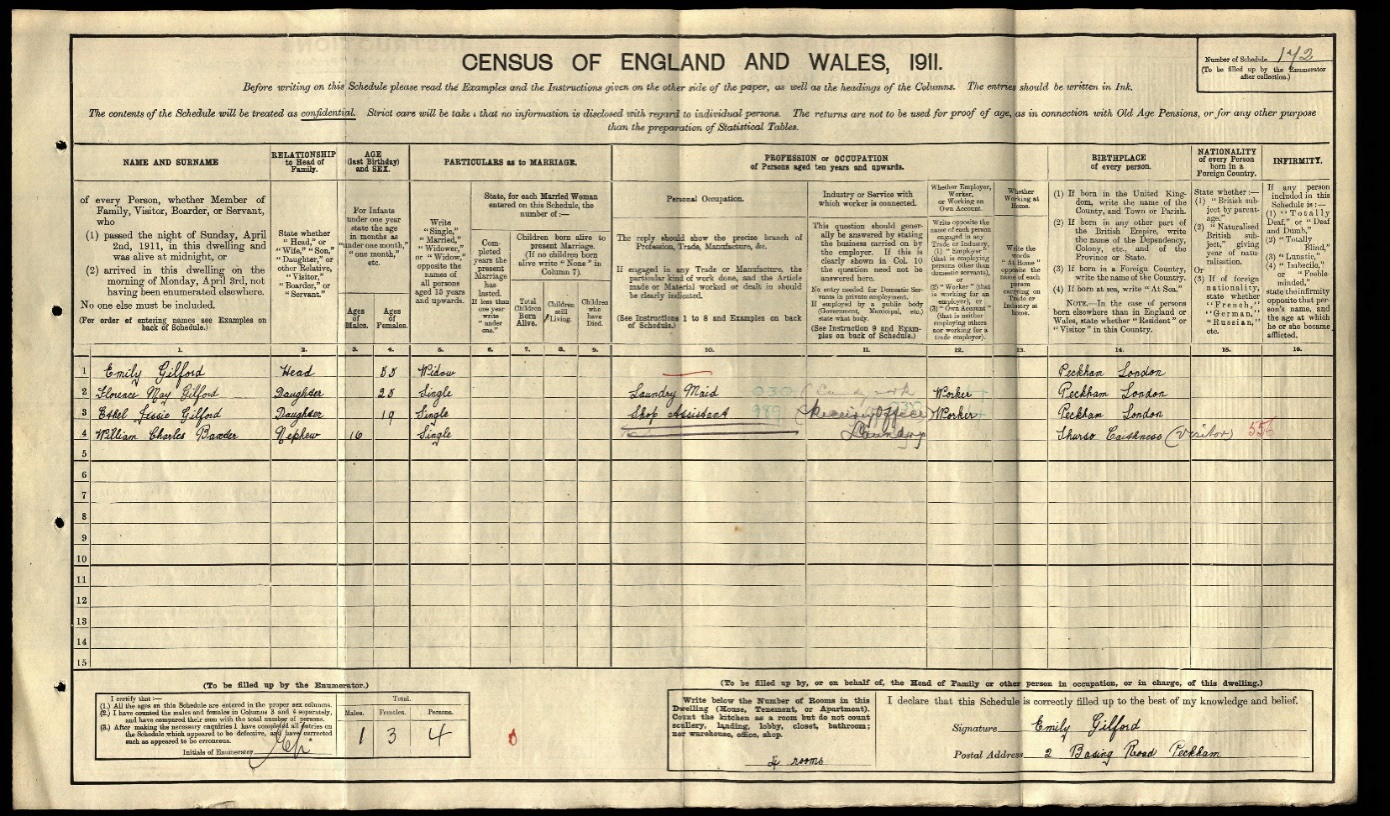 CENSUS OF ENGLAND AND WALES, 1911.
Number of Schedule 172
(To be filled up by the Enumerator
after collection.)
Before writing on this Schedule please read the Examples and the Instructions given on the other side of the paper, as well as the headings of the Columns. The entries should be written in Ink.
The contents of the Schedule will be treated as confidential. Strict care will be taken that no information is disclosed with regard to individual persons. The returns are not to be used for proof of age, as in connection with Old Age Pensions, or for any other purpose
than the preparation of Statistical Tables.
NAME AND SURNAME
RELATIONSHIP
to Head of
Family.
AGE
(last Birthday)
and SEX.
PARTICULARS as to MARRIAGE.
PROFESSION or OCCUPATION
of Persons aged ten years and upwards.
BIRTHPLACE
of every person.
NATIONALITY
of every Person
born in a
Foreign Country.
INFIRMITY.
of every Person, whether Member of
Family, Visitor, Boarder, or Servant,
who
(1) passed the night of Sunday, April
2nd, 1911, in this dwelling and
was alive at midnight, or
(2) arrived in this dwelling on the
morning of Monday, April 3rd, not
having been enumerated elsewhere.
No one else must be included.
(For order of entering names see Examples on
back of Schedule.)
State whether
"Head," or
"Wife," "Son,"
"Daughter," or
other Relative,
"Visitor,"
"Boarder," or
"Servant."
For Infants
under one year
state the age
in months as
"under one month,"
"one month,"
etc.
Ages
of
Males.
Ages
of
Females.
Write
"Single,"
"Married,"
"Widower,"
or "Widow,"
opposite the
names of
all persons
aged 15 years
and upwards.
State, for each Married Woman
entered on this Schedule, the
number of:—
Completed
years the
present
Marriage
has
lasted.
If less than
one year
write
"under
one."
Children born alive to
present Marriage.
(If no children born
alive write "None" in
Column 7).
Total
Children
Born
Alive.
Children
still
Living.
Children
who
have
Died.
Personal Occupation.
The reply should show the precise branch of
Profession, Trade, Manufacture, &c.
If engaged in any Trade or Manufacture, the
particular kind of work done, and the Article
made or Material worked or dealt in should
be clearly indicated.
(See Instructions 1 to 8 and Examples on back
of Schedule.)
Industry or Service with
which worker is connected.
This question should generally
be answered by stating
the business carried on by
the employer. If this is
clearly shown in Col. 10
the question need not be
answered.
No entry needed for Domestic Servants
in private employment.
If employed by a public body
(Government, Municipal, etc.)
state what body.
(See Instruction 9 and Examples
on back of Schedule.)
Whether Employer,
Worker,
or Working on
Own Account.
Write opposite the
name of each person
engaged in any
Trade or Industry,
(1) "Employer"
(that is employing
persons other than
domestic servants),
or
(2) "Worker" (that
is working for an
employer), or
(3) "Own Account"
(that is neither
employing others
nor working for a
trade employer).
Whether
Working at
Home.
Write the
words
"At Home"
opposite the
name of each
person
carrying on
Trade or
Industry at
home.
(1) If born in the United Kingdom,
write the name of the
County, and Town or Parish.
(2) If born in any other part of
the British Empire, write
the name of the Dependency,
Colony, etc., and of the
Province or State.
(3) If born in a Foreign Country,
write the name of the Country.
(4) If born at sea, write "At Sea."
NOTE.—In the case of persons
born elsewhere than in England or
Wales, state whether "Resident" or
"Visitor" in this Country.
State whether:—
(1) "British subject
by parentage,"
(2) "Naturalised
British subject,"
giving
year of naturalisation.
Or
(3) If of foreign
nationality,
state whether
"French,"
"German,"
"Russian,"
etc.
If any person
included in this
Schedule is:—
(1) "Totally
Deaf," or "Deaf
and Dumb,"
(2) "Totally
Blind,"
(3) "Lunatic,"
(4) "Imbecile,"
or "Feeble-minded,"
state the infirmity
opposite that person's
name, and
the age at which
he or she became
afflicted.
1. 2. 3. 4. 5. 6. 7. 8. 9. 10. 11. 12. 13. 14. 15. 16.
1 Emily Gilford Head 55 Widow Peckham London
2 Florence May Gilford Daughter 25 Single Laundry Maid 030 Worker Peckham London
3 Ethel Jessie Gilford Daughter 19 Single Shop Assistant 989 (Receiving Office Worker Peckham London
Laundry
4 William Charles Nephew 16 Single Thurso Caithness (Visitor) 556
5
6
7
8
9
10
11
12
13
14
15
(To be filled up by the Enumerator.)
I certify that:—
(1.) All the ages on this Schedule are entered in the proper sex columns.
(2.) I have counted the males and females in Columns 3 and 4 separately,
and have compared their sum with the total number of persons.
(3.) After making the necessary enquiries I have completed all entries on
the Schedule which appeared to be defective, and have corrected
such as appeared to be erroneous.
Initials of Enumerator
Total.
Males. Females. Persons.
1 3 4
(To be filled up by, or on behalf of, the Head of Family or other person in occupation, or in charge, of this dwelling.)
Write below the Number of Rooms in this
Dwelling (House, Tenement, or Apartment).
Count the kitchen as a room but do not count
scullery, landing, lobby, closet, bathroom;
nor warehouse, office, shop.
rooms
I declare that this Schedule is correctly filled up to the best of my knowledge and belief.
Signature Emily Gilford
Postal Address 2 Basing Road Peckham